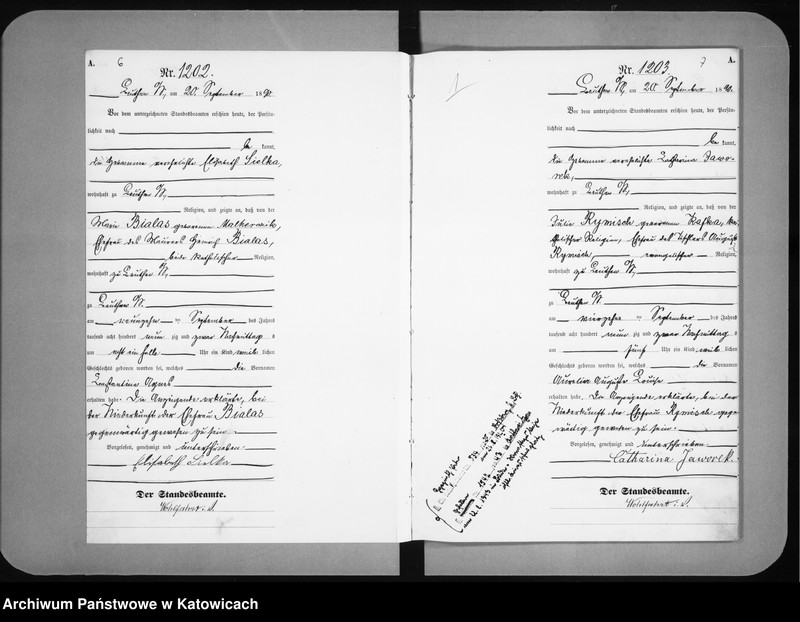 A.
6
Nr. 1202.
Beuthen O/S, am 20. September 1890.
Vor dem unterzeichneten Standesbeamten erschien heute, der Persön-
lichkeit nach
be kannt,
die Hebamme verehelichte Elisabeth Sielka,
wohnhaft zu Beuthen O/S,
Religion, und zeigte an, daß von der
Marie Bialas geborenen
Ehefrau des Maurers Bialas,
beide katholischer Religion,
wohnhaft zu Beuthen O/S,
zu Beuthen O/S.
am neunzehn ten September des Jahres
tausend acht hundert neun zig und zwar Nachmittag s
um acht ein halb Uhr ein Kind weib lichen
Geschlechts geboren worden sei, welches die Vornamen
Konstantine Agnes
erhalten habe. Die Anzeigende erklärte, bei
der Niederkunft der Ehefrau Bialas
gegenwärtig gewesen zu sein.
Vorgelesen, genehmigt und unterschrieben.
Elisabeth Sielka
Der Standesbeamte.
1
7
A.
Nr. 1203.
Beuthen O/S, am 20. September 1890.
Vor dem unterzeichneten Standesbeamten erschien heute, der Persön-
lichkeit nach
be kannt,
die Hebamme verehelichte Catharina Jawo-
rek,
wohnhaft zu Beuthen O/S,
Religion, und zeigte an, daß von der
Julie Kymisch geborenen Kafka, ka-
tholischer Religion, Ehefrau des Tischlers August
Kymisch, evangelischer Religion,
wohnhaft zu Beuthen O/S,
zu Beuthen O/S.
am vierzehn ten September des Jahres
tausend acht hundert neun zig und zwar Nachmittag s
um fünf Uhr ein Kind weib lichen
Geschlechts geboren worden sei, welches die Vornamen
Aurelie Auguste Louise
erhalten habe. Die Anzeigende erklärte, bei der
Niederkunft der Ehefrau Kymisch gegen-
wärtig gewesen zu sein.
Vorgelesen, genehmigt und unterschrieben.
Catharina Jaworek.
Der Standesbeamte.
Archiwum Państwowe w Katowicach